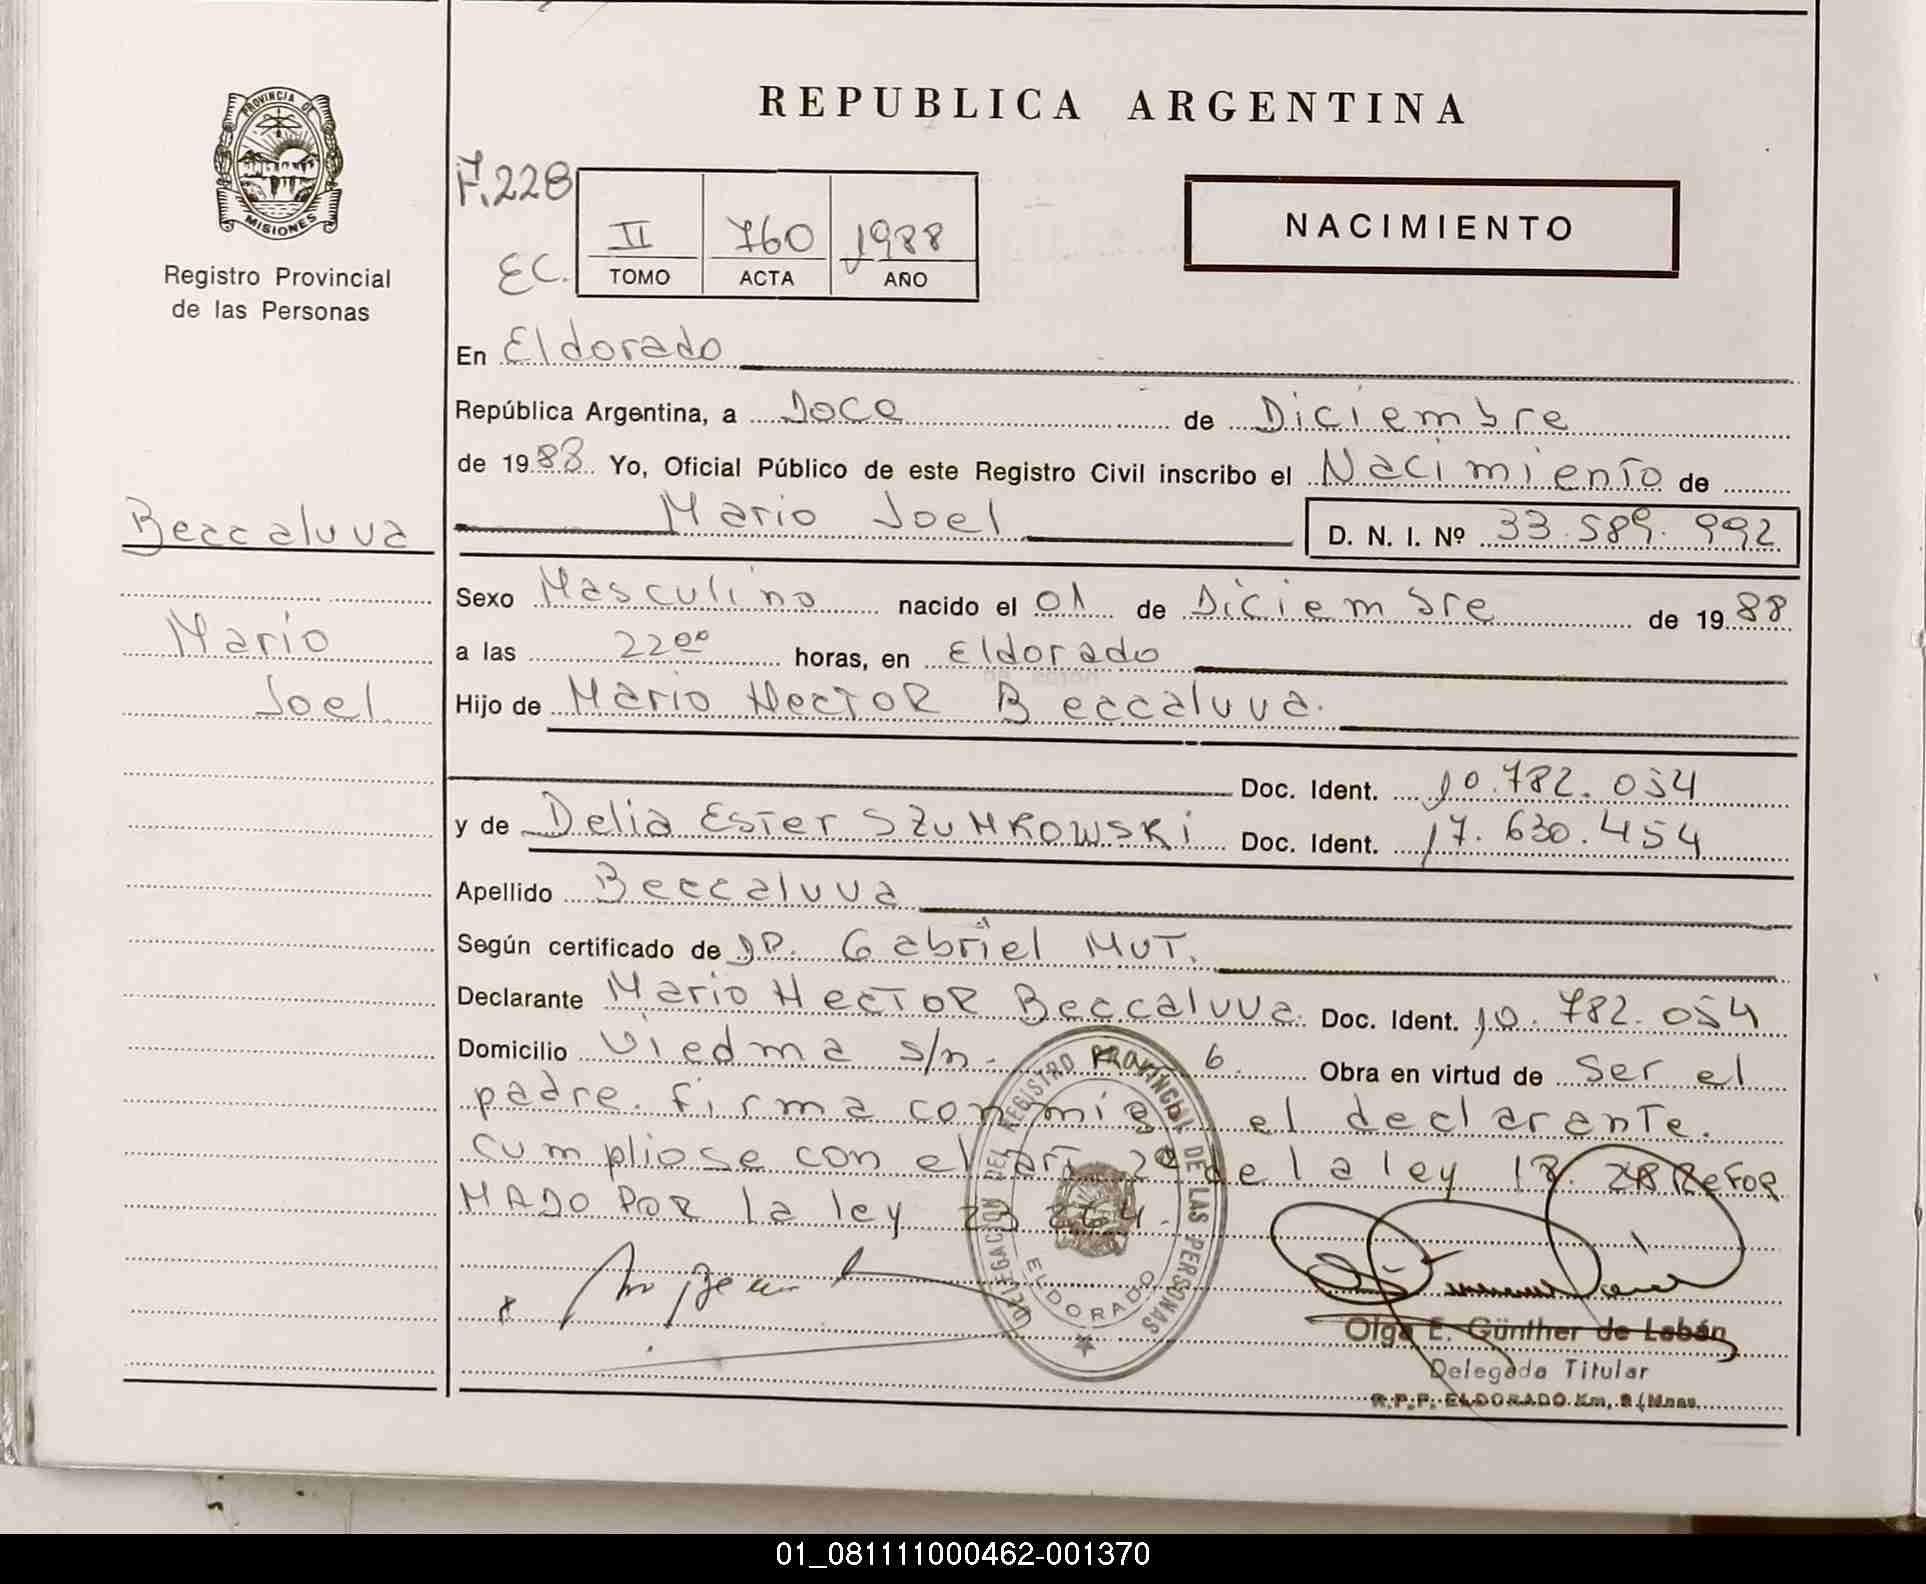 PROVINCIA DE
MISIONES
Registro Provincial
de las Personas
REPUBLICA ARGENTINA
F.228
EC.
II 760 1988
TOMO ACTA AÑO
NACIMIENTO
En Eldorado
República Argentina, a Doce de Diciembre
de 1988 Yo, Oficial Público de este Registro Civil inscribo el Nacimiento de
Mario Joel D. N. I. Nº 33.589.992
Beccaluva
Mario
Joel
Sexo Masculino nacido el 01 de Diciembre de 1988
a las 22 00 horas, en Eldorado
Hijo de Mario Hector Beccaluva.
Doc. Ident. 10.782.054
y de Delia Ester SZUMKOWSKi Doc. Ident. 17.630.454
Apellido Beccaluva
Según certificado de DR. Gabriel MUT.
Declarante Mario Hector Beccaluva. Doc. Ident. 10.782.054
Domicilio Viedma s/n. 6. Obra en virtud de Ser el
padre. firma conmigo el declarante.
cumpliose con el art 2º de la ley 18. Refor
MADO POR la ley 23
DELEGACION DEL REGISTRO PROVINCIAL DE LAS PERSONAS
ELDORADO
Olga E. Günther de Labán
Delegada Titular
R.P.P. ELDORADO Km. 9 (Mnes.
01_081111000462-001370